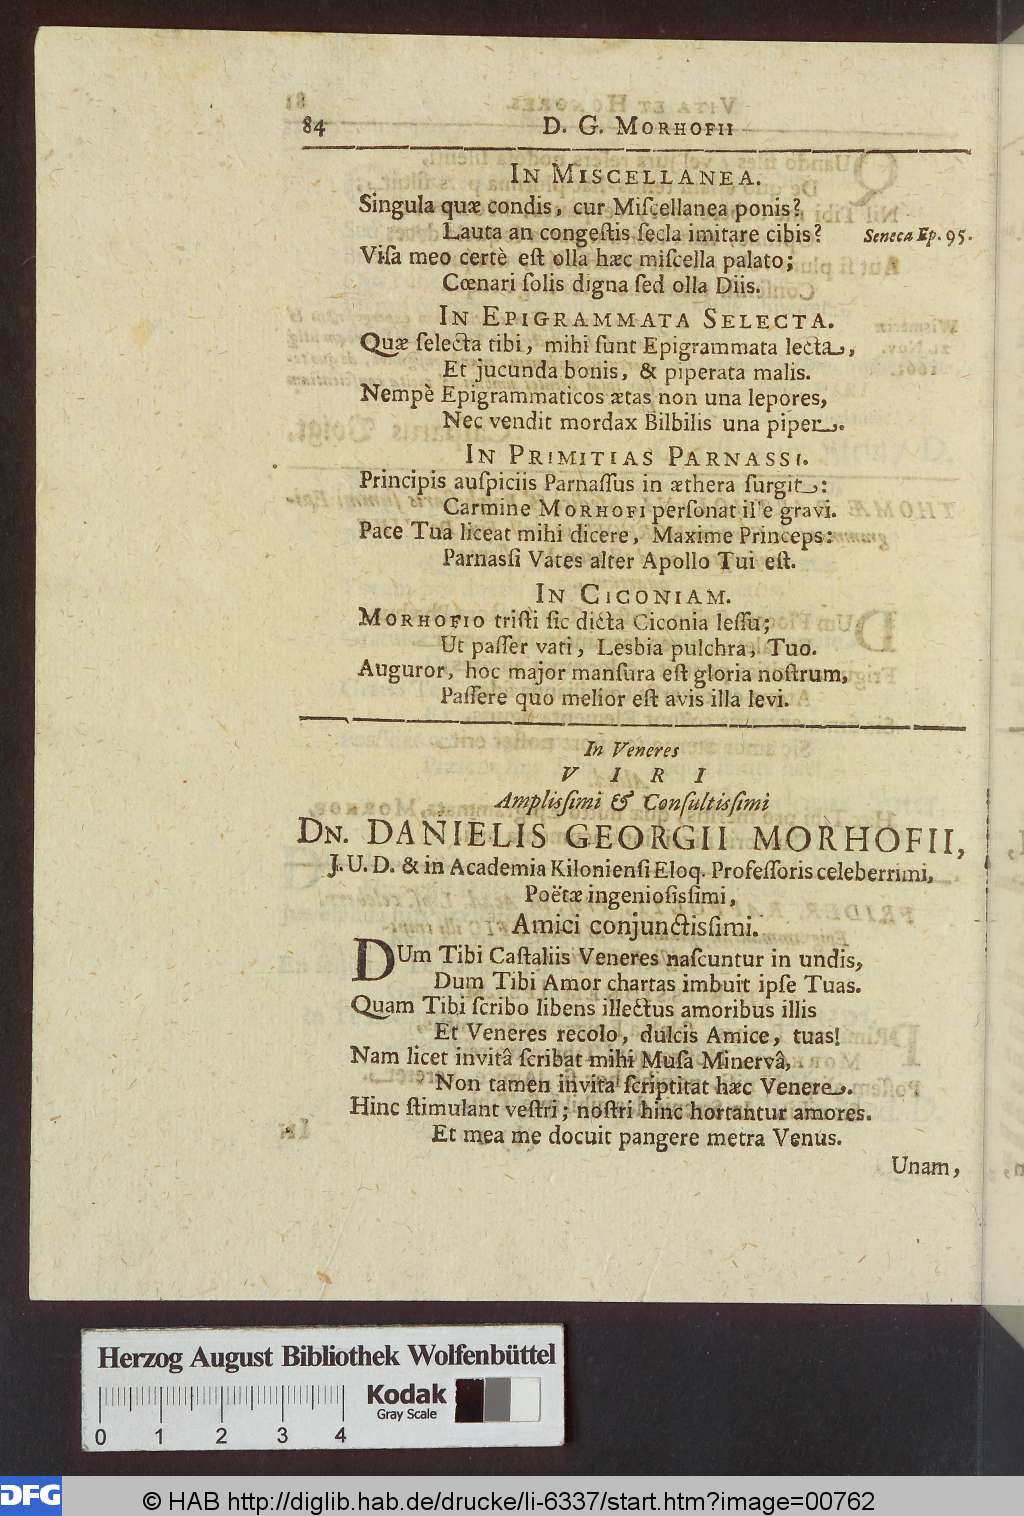 84 D. G. MORHOFII
IN MISCELLANEA.
Singula quæ condis, cur Miſcellanea ponis?
Lauta an congeſtis ſecla imitare cibis? Seneca Ep. 95.
Viſa meo certè eſt olla hæc miſcella palato;
Cœnari ſolis digna ſed olla Diis.
IN EPIGRAMMATA SELECTA.
Quæ ſelecta tibi, mihi ſunt Epigrammata lecta,
Et jucunda bonis, & piperata malis.
Nempè Epigrammaticos ætas non una lepores,
Nec vendit mordax Bilbilis una piper.
IN PRIMITIAS PARNASSI.
Principis auſpiciis Parnaſſus in æthera ſurgit:
Carmine MORHOFI perſonat ille gravi.
Pace Tua liceat mihi dicere, Maxime Princeps:
Parnasſi Vates alter Apollo Tui eſt.
IN CICONIAM.
MORHOFIO triſti ſic dicta Ciconia leſſu;
Ut paſſer vati, Lesbia pulchra, Tuo.
Auguror, hoc major manſura eſt gloria noſtrum,
Paſſere quo melior eſt avis illa levi.
In Veneres
VIRI
Amplisſimi & Conſultisſimi
DN. DANIELIS GEORGII MORHOFII,
J. U. D. & in Academia Kilonienſi Eloq. Profeſſoris celeberrimi,
Poëtæ ingeniosisſimi,
Amici conjunctisſimi.
DUm Tibi Caſtaliis Veneres naſcuntur in undis,
Dum Tibi Amor chartas imbuit ipſe Tuas.
Quam Tibi ſcribo libens illectus amoribus illis
Et Veneres recolo, dulcis Amice, tuas!
Nam licet invitâ ſcribat mihi Muſa Minervâ,
Non tamen invita ſcriptitat hæc Venere.
Hinc ſtimulant veſtri; noſtri hinc hortantur amores.
Et mea me docuit pangere metra Venus.
Unam,
Herzog August Bibliothek Wolfenbüttel
Kodak
Gray Scale
0 1 2 3 4
DFG
© HAB http://diglib.hab.de/drucke/li-6337/start.htm?image=00762